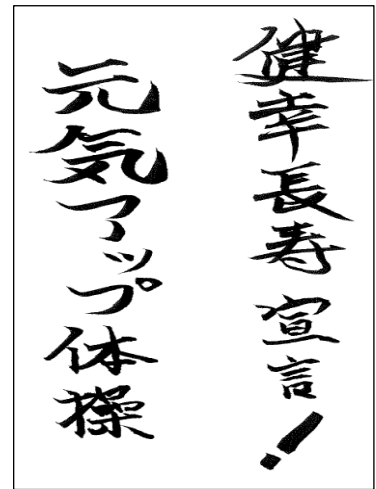 健幸長寿 宣言!
元気アップ体操